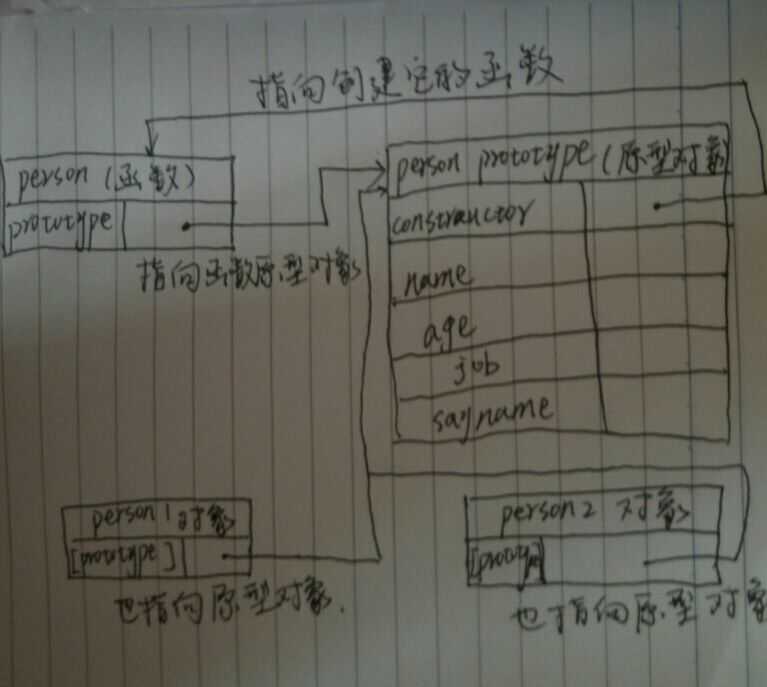 指向创建它的函数
person (函数)
prototype
指向函数原型对象
person prototype (原型对象)
constrauctor
name
age
job
sayname
person1对象
[prototype]
也指向原型对象.
person2 对象
也指向原型对象